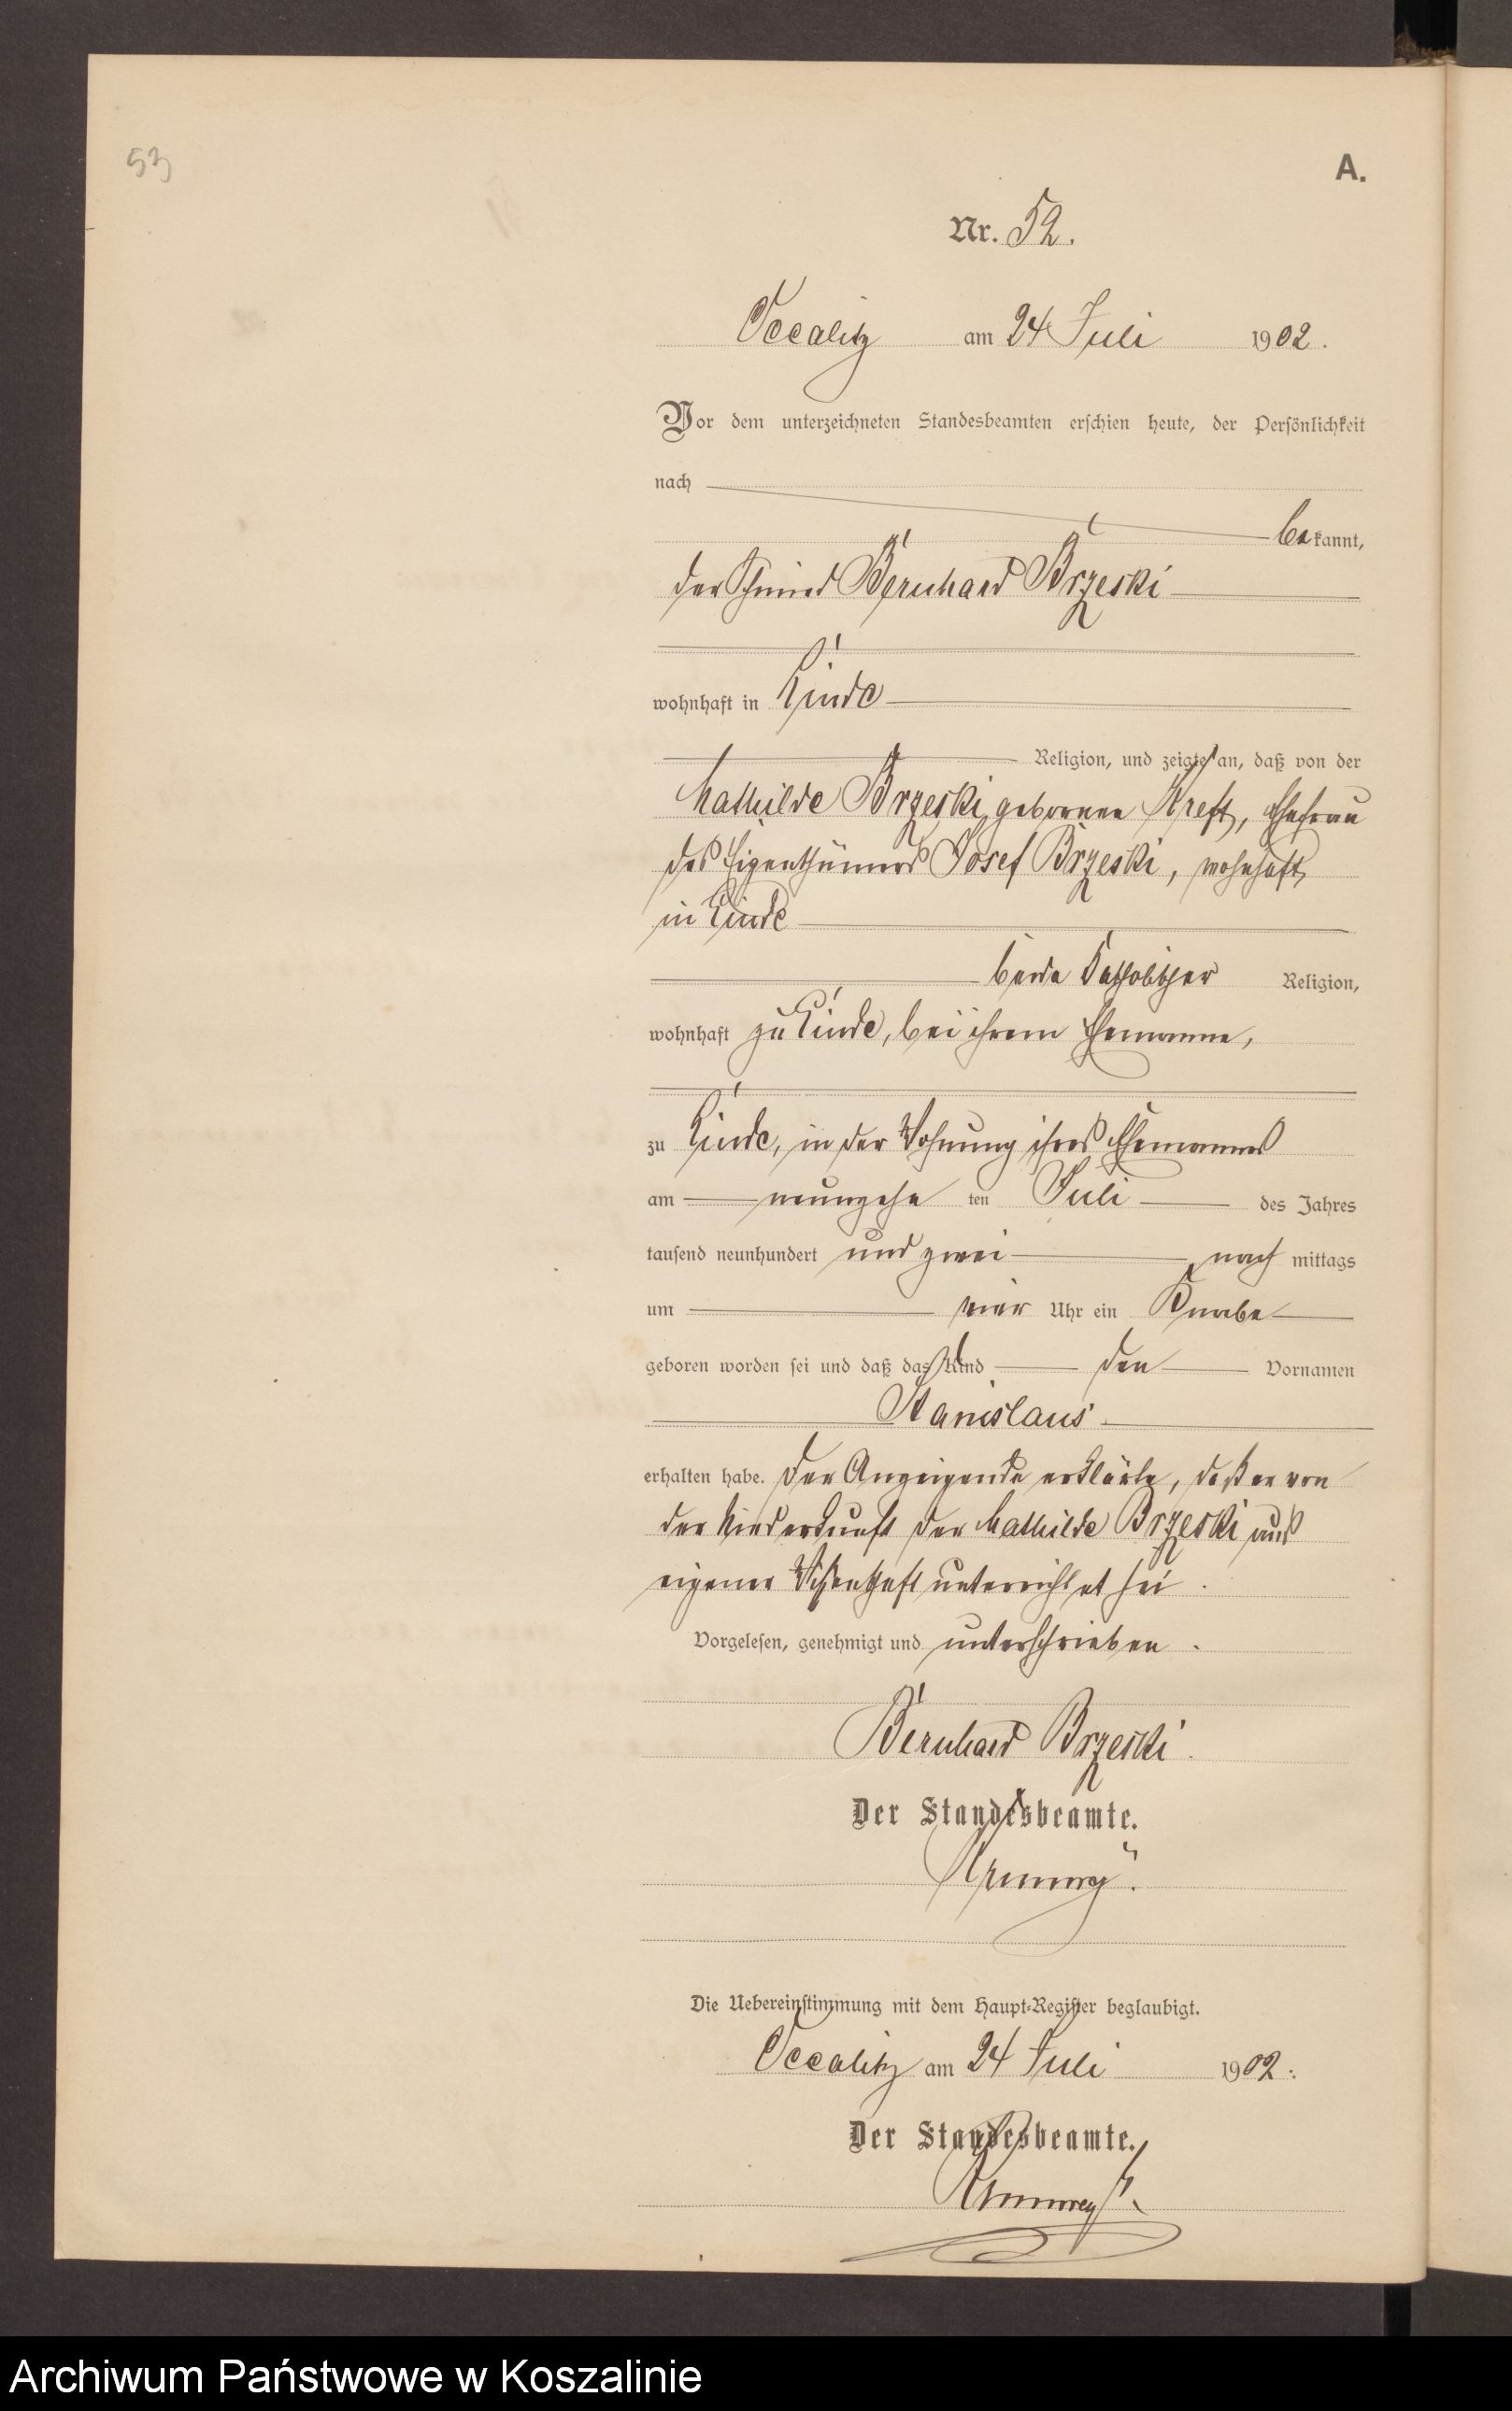 53
A.
Nr. 52.
Occalitz am 24 Juli 1902.
Vor dem unterzeichneten Standesbeamten erschien heute, der Persönlichkeit
nach
bekannt,
der Schmied Bernhard Brzeski
wohnhaft in Linde
Religion, und zeigte an, daß von der
Mathilde Brzeski, geborenen Kreft, Ehefrau
des Eigenthümers Josef Brzeski, wohnhaft
in Linde
beide katholischer Religion,
wohnhaft zu Linde, bei ihrem Ehemanne,
zu Linde, in der Wohnung ihres Ehemannes
am neunzehn ten Juli des Jahres
tausend neunhundert und zwei nach mittags
um vier Uhr ein Knabe
geboren worden sei und daß das Kind den Vornamen
Stanislaus
erhalten habe. Der Anzeigende erklärte, daß er von
der Niederkunft der Mathilde Brzeski aus
eigener Wissenschaft unterrichtet sei.
Vorgelesen, genehmigt und unterschrieben.
Bernhard Brzeski.
Der Standesbeamte.
Die Uebereinstimmung mit dem Haupt-Register beglaubigt.
Occalitz am 24 Juli 1902.
Der Standesbeamte.
Archiwum Państwowe w Koszalinie